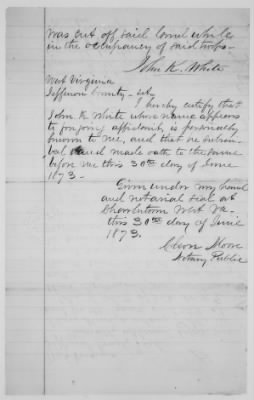 was cut off said land while
in the occupancy of said troops—
John K. White
West Virginia
Jefferson County - Sct
I hereby certify that
John K White whose name appears
to foregoing affidavit is personally
known to me, and that he subscri-
bed and made oath to the same
before me this 30th day of June
1873—
Given under my hand
and notarial seal at
Charlestown West Va—
this 30th day of June
1873.
Cleon Moore
Notary Public